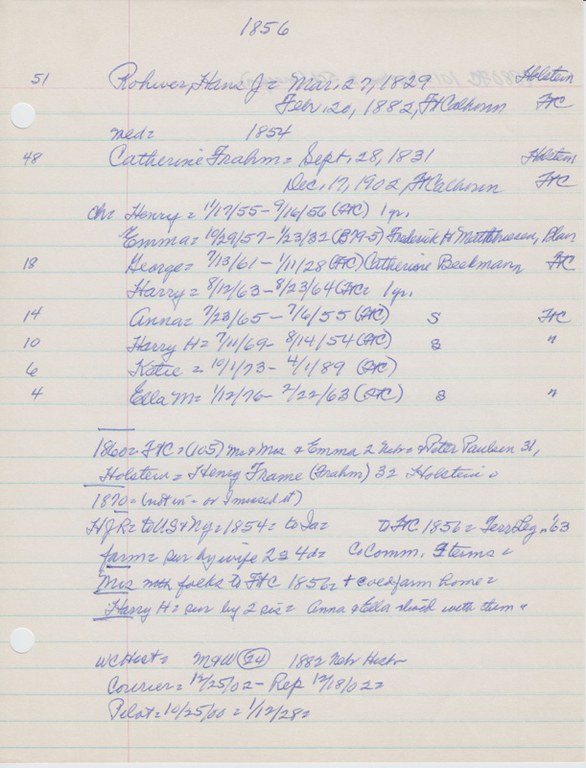 1856
51 Rohwer, Hans J = Mar. 27, 1829 Holstein
Febr. 20, 1882, Ft Calhoun FC
med = 1854
48 Catherine Frahm = Sept. 28, 1831 Holstein
Dec. 17, 1902, Ft Calhoun FC
ch = Henry = 11/17/55 - 9/16/56 (FC) 1 yr.
Emma = 10/29/57 - 1/23/32 (B79-5) Frederick H Matthiessen, Blair
18 George = 7/13/61 - 1/11/28 (FC) Catherine Beekmann FC
Harry = 8/12/63 - 8/23/64 (FC = 1 yr.
14 Anna = 7/23/65 - 7/6/55 (FC) S FC
10 Harry H = 7/11/69 - 8/14/54 (FC) S "
6 Katie = 10/1/73 - 4/1/89 (FC)
4 Ella M = 1/12/76 - 2/22/63 (FC) S "
1860 = FtC = (105) Mr & Mrs & Emma 2 Nebr = & Peter Paulsen 31,
Holstein = Henry Frame (Frahm) 32 Holstein =
1870 = (not in - or I missed it)
HJR = to U.S & Ny = 1854 = to Ia = To FtC 1856 = Terr Leg = '63
farm = sur by wife 2s 4d = Co Comm. 3 terms =
Mrs = with folks to FtC 1856 = + ever farm home =
Harry H = sur by 2 sis = Anna & Ella lived with them =
WC Hist = M & W (24) 1882 Nebr Hist
Courier = 12/25/02 - Rep 12/18/02 =
Pilot = 10/25/00 = 1/12/28 =